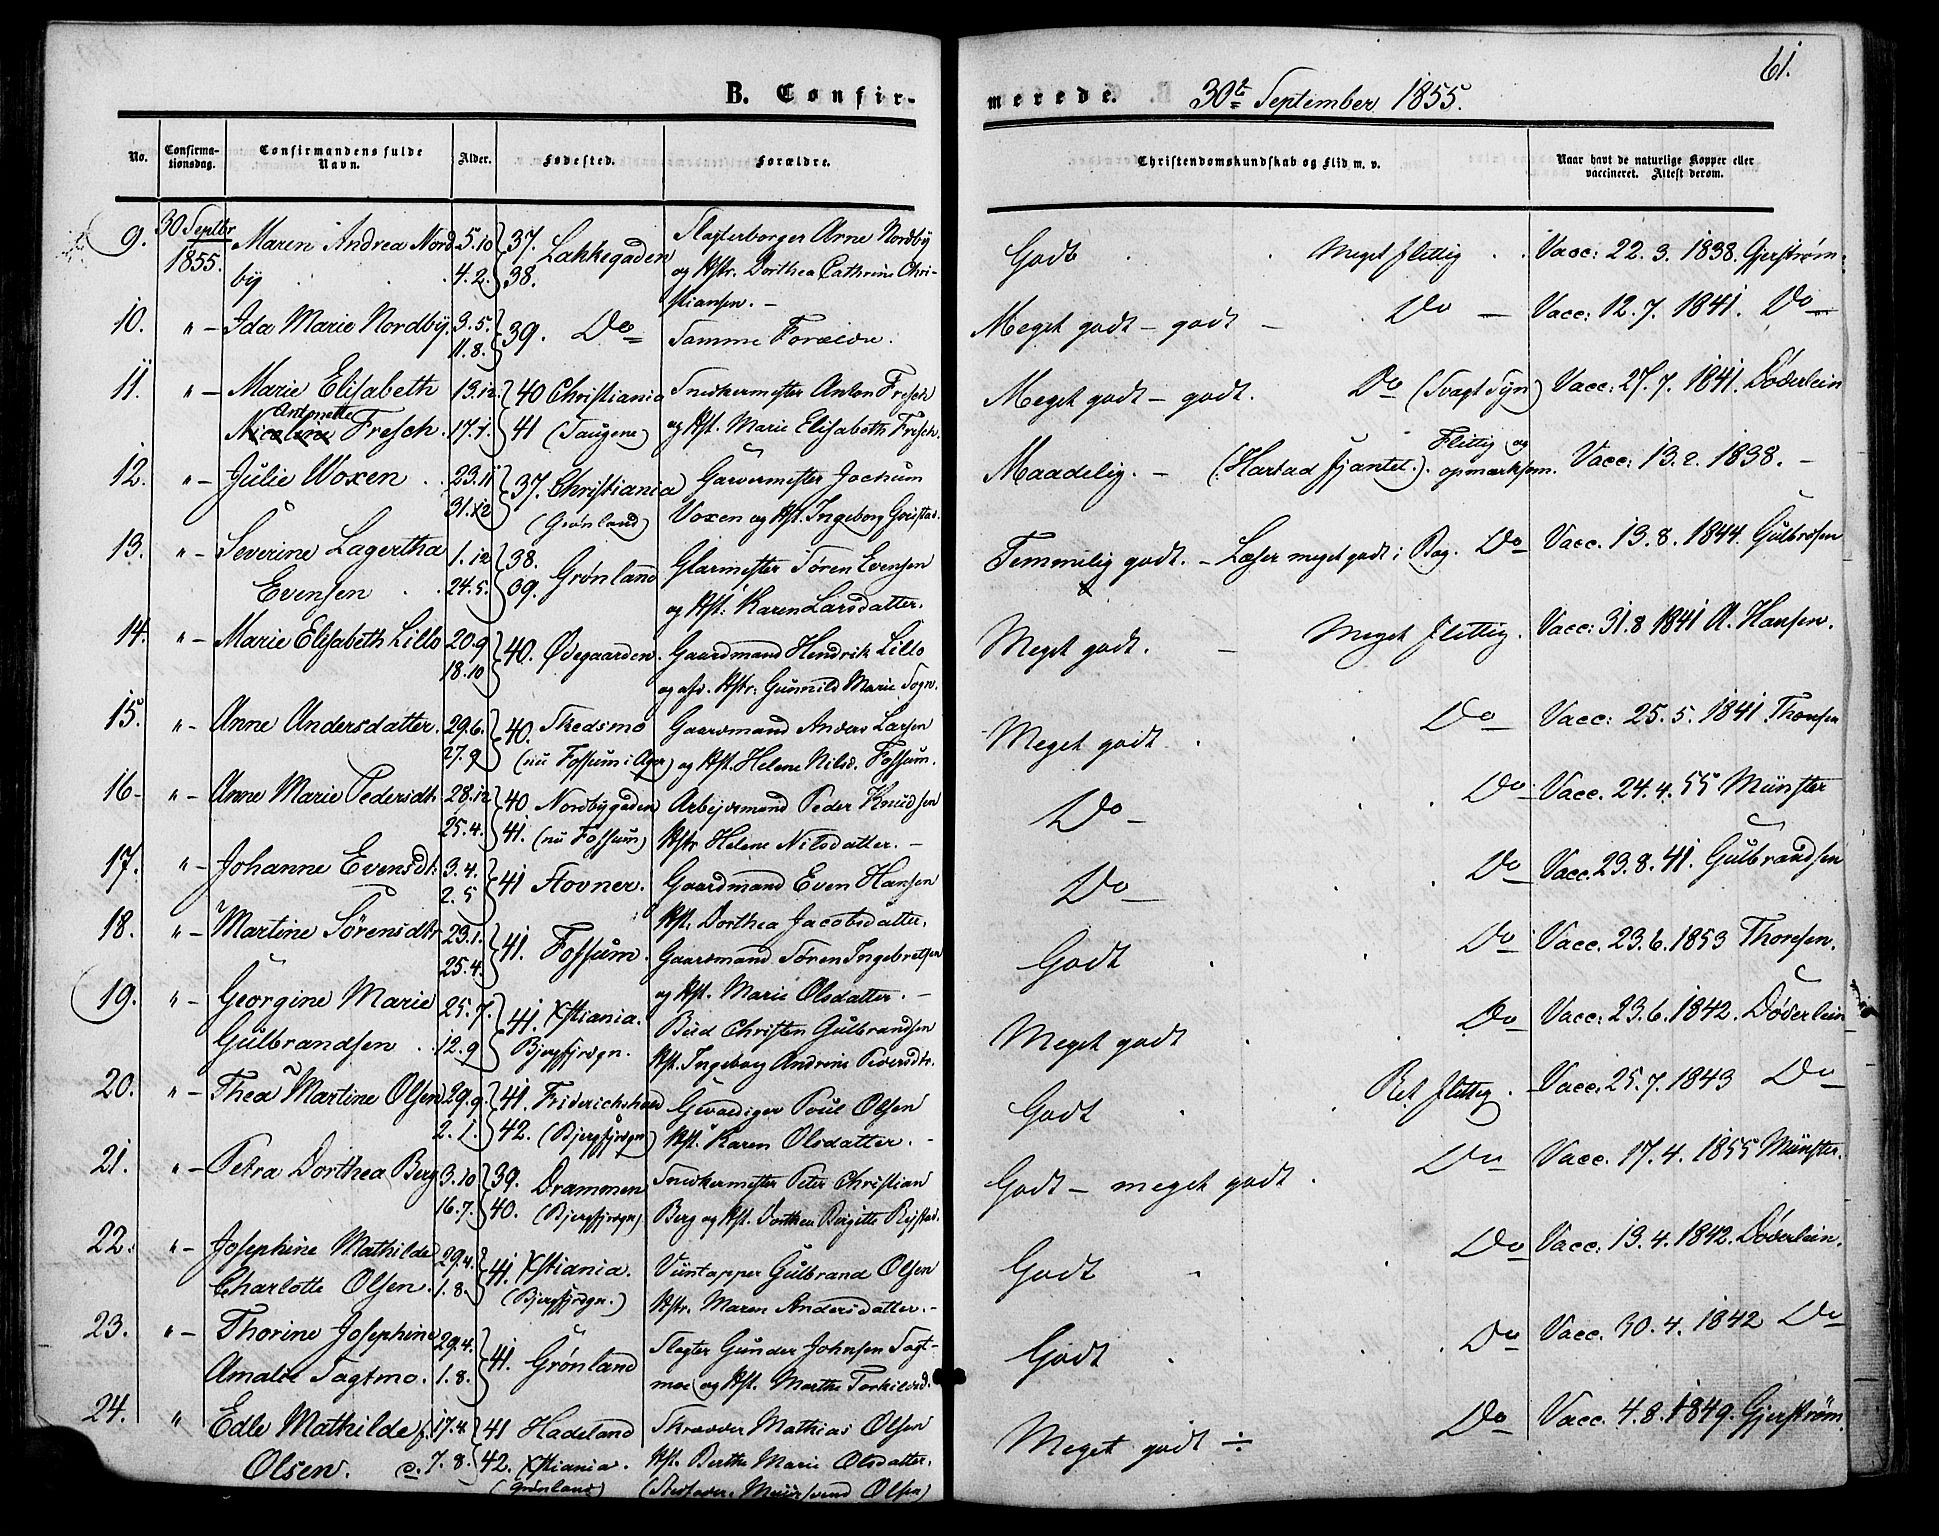 61.
B. Confir-
merede.
30te September 1855.
No.
Confirma-
tionsdag.
Confirmandens fulde
Navn.
Alder.
Fødested.
Forældre.
Christendomskundskab og Flid m. v.
Naar havt de naturlige Kopper eller
vaccineret. Attest derom.
9. 30 Septbr 1855. Maren Andrea Nord- 5.10 37. Lakkegaden Slagterborger Arne Nordby Godt Meget flittig Vacc: 22. 3. 1838. Gjerstrøm.
by 4.2. 38. og Hstr. Dorthea Cathrine Chri-
stiansen. -
10. " - Ida Marie Nordby. 3.5. 39. Do Samme Forældre. Meget godt - godt - Do - Vacc: 12. 7. 1841. Do
11.8.
11. " - Marie Elisabeth 13.12 40 Christiania Snedkermester Anton Fresch Meget godt - godt. Do (Svagt Syn) Vacc: 27. 7. 1841. Døderlein
Antonette
Nicoline Fresch. 17.1. 41 (Saugene) og Hst. Marie Elisabeth Fresch.
12. " - Julie Woxen 23.11 37. Christiania Garvermester Jochum Maadelig. - Flittig og
opmærksom. Vacc: 13. 2. 1838. -
31.12 (Grønland) Voxen og Hst. Ingeborg
13. " - Severine Lagertha 1.12 38. Grønland Glarmester Sören Evensen Temmelig godt. - Læser meget godt i Bog. Do Vacc. 13. 8. 1844. Gulbrdsen
Evensen 24.5. 39. og Hst. Karen Larsdatter.
14. " - Marie Elisabeth Lillo 20.9 40. Ødegaarden. Gaardmand Hendrik Lillo Meget godt. - Meget flittig. Vacc: 31. 8 1841 A. Hansen.
18.10 og afd. Hstr. Gunnild Marie Sogn.
15. " - Anne Andersdatter. 29.6. 40. Skedsmo Gaardmand Anders Larsen Meget godt Do Vacc: 25. 5. 1841 Thoresen
27.9 (nu Fossum i Ager) og Hst. Helene Nilsd. Fossum.
16 - " - Anne Marie Pedersdtr. 28.12 40 Nordbygaden Arbejdsmand Peder Knudsen Do Do Vacc. 24. 4. 55 Münster
25.4. 41. (nu Fossum) Hstr Helene Nilsdatter. -
17. " - Johanne Evensdt: 3.4. 41 Stovner. Gaardmand Even Hansen Do Do Vacc. 23. 8. 41. Gulbrandsen
2.5 Hst. Dorthea Jacobsdatter.
18. " - Martine Sörensdtr 23.1. 41. Fossum. Gaardmand Sören Ingebretsen Godt Do Vacc. 23. 6. 1853 Thoresen.
25.4. og Hst. Marie Olsdatter. -
19. " - Georgine Marie 25.7. 41. Xstiania. Bud Christen Gulbrandsen Meget godt Do Vacc: 23. 6. 1842. Døderlein
Gulbrandsen 12.9 Bjergfjrdgn. Hst. Ingeborg Andrine Pedersdtr.
20. " - Thea Martine Olsen 29.9. 41. Friderichshald Gevaldiger Poul Olsen Godt Ret flittig. Vacc. 25. 7. 1843 Do
2.1. 42. (Bjergfjrdgn) Hst. Karen Olsdatter. -
21. " - Petra Dorthea Berg 3.10 39. Drammen Snedkermester Peter Christian Godt - meget godt. Do Vacc. 17. 4. 1855 Münster.
16.7. 40. (Bjergfjrdgn) Berg og Hst. Dorthea Birgitte
22. " - Josephine Mathilde 29.4. 41. Xstiania. Viintapper Gulbrand Olsen Godt Do Vacc: 13. 4. 1842. Døderlein.
Charlotte Olsen. 1.8. (Bjergfjrdgn.) Hstr. Maren Andersdatter. -
23. " - Thorine Josephine 29.4. 41. Grønland Slagter Gunder Johnsen Sagt- Godt Do Vacc. 30. 4. 1842 Do
Amalie Sagtmo. 1.8. moe og Hst. Marthe Torkildsd.
24. " Edle Mathilde f. 17.4. 41 Hadeland Skrædder Mathias Olsen Meget godt ÷ Do Vacc. 4. 8. 1849. Gjerstrøm.
Olsen. c. 7.8. 42. Xstiania. Hst. Berthe Marie Olsdatter.
(Grønland) Olsen)